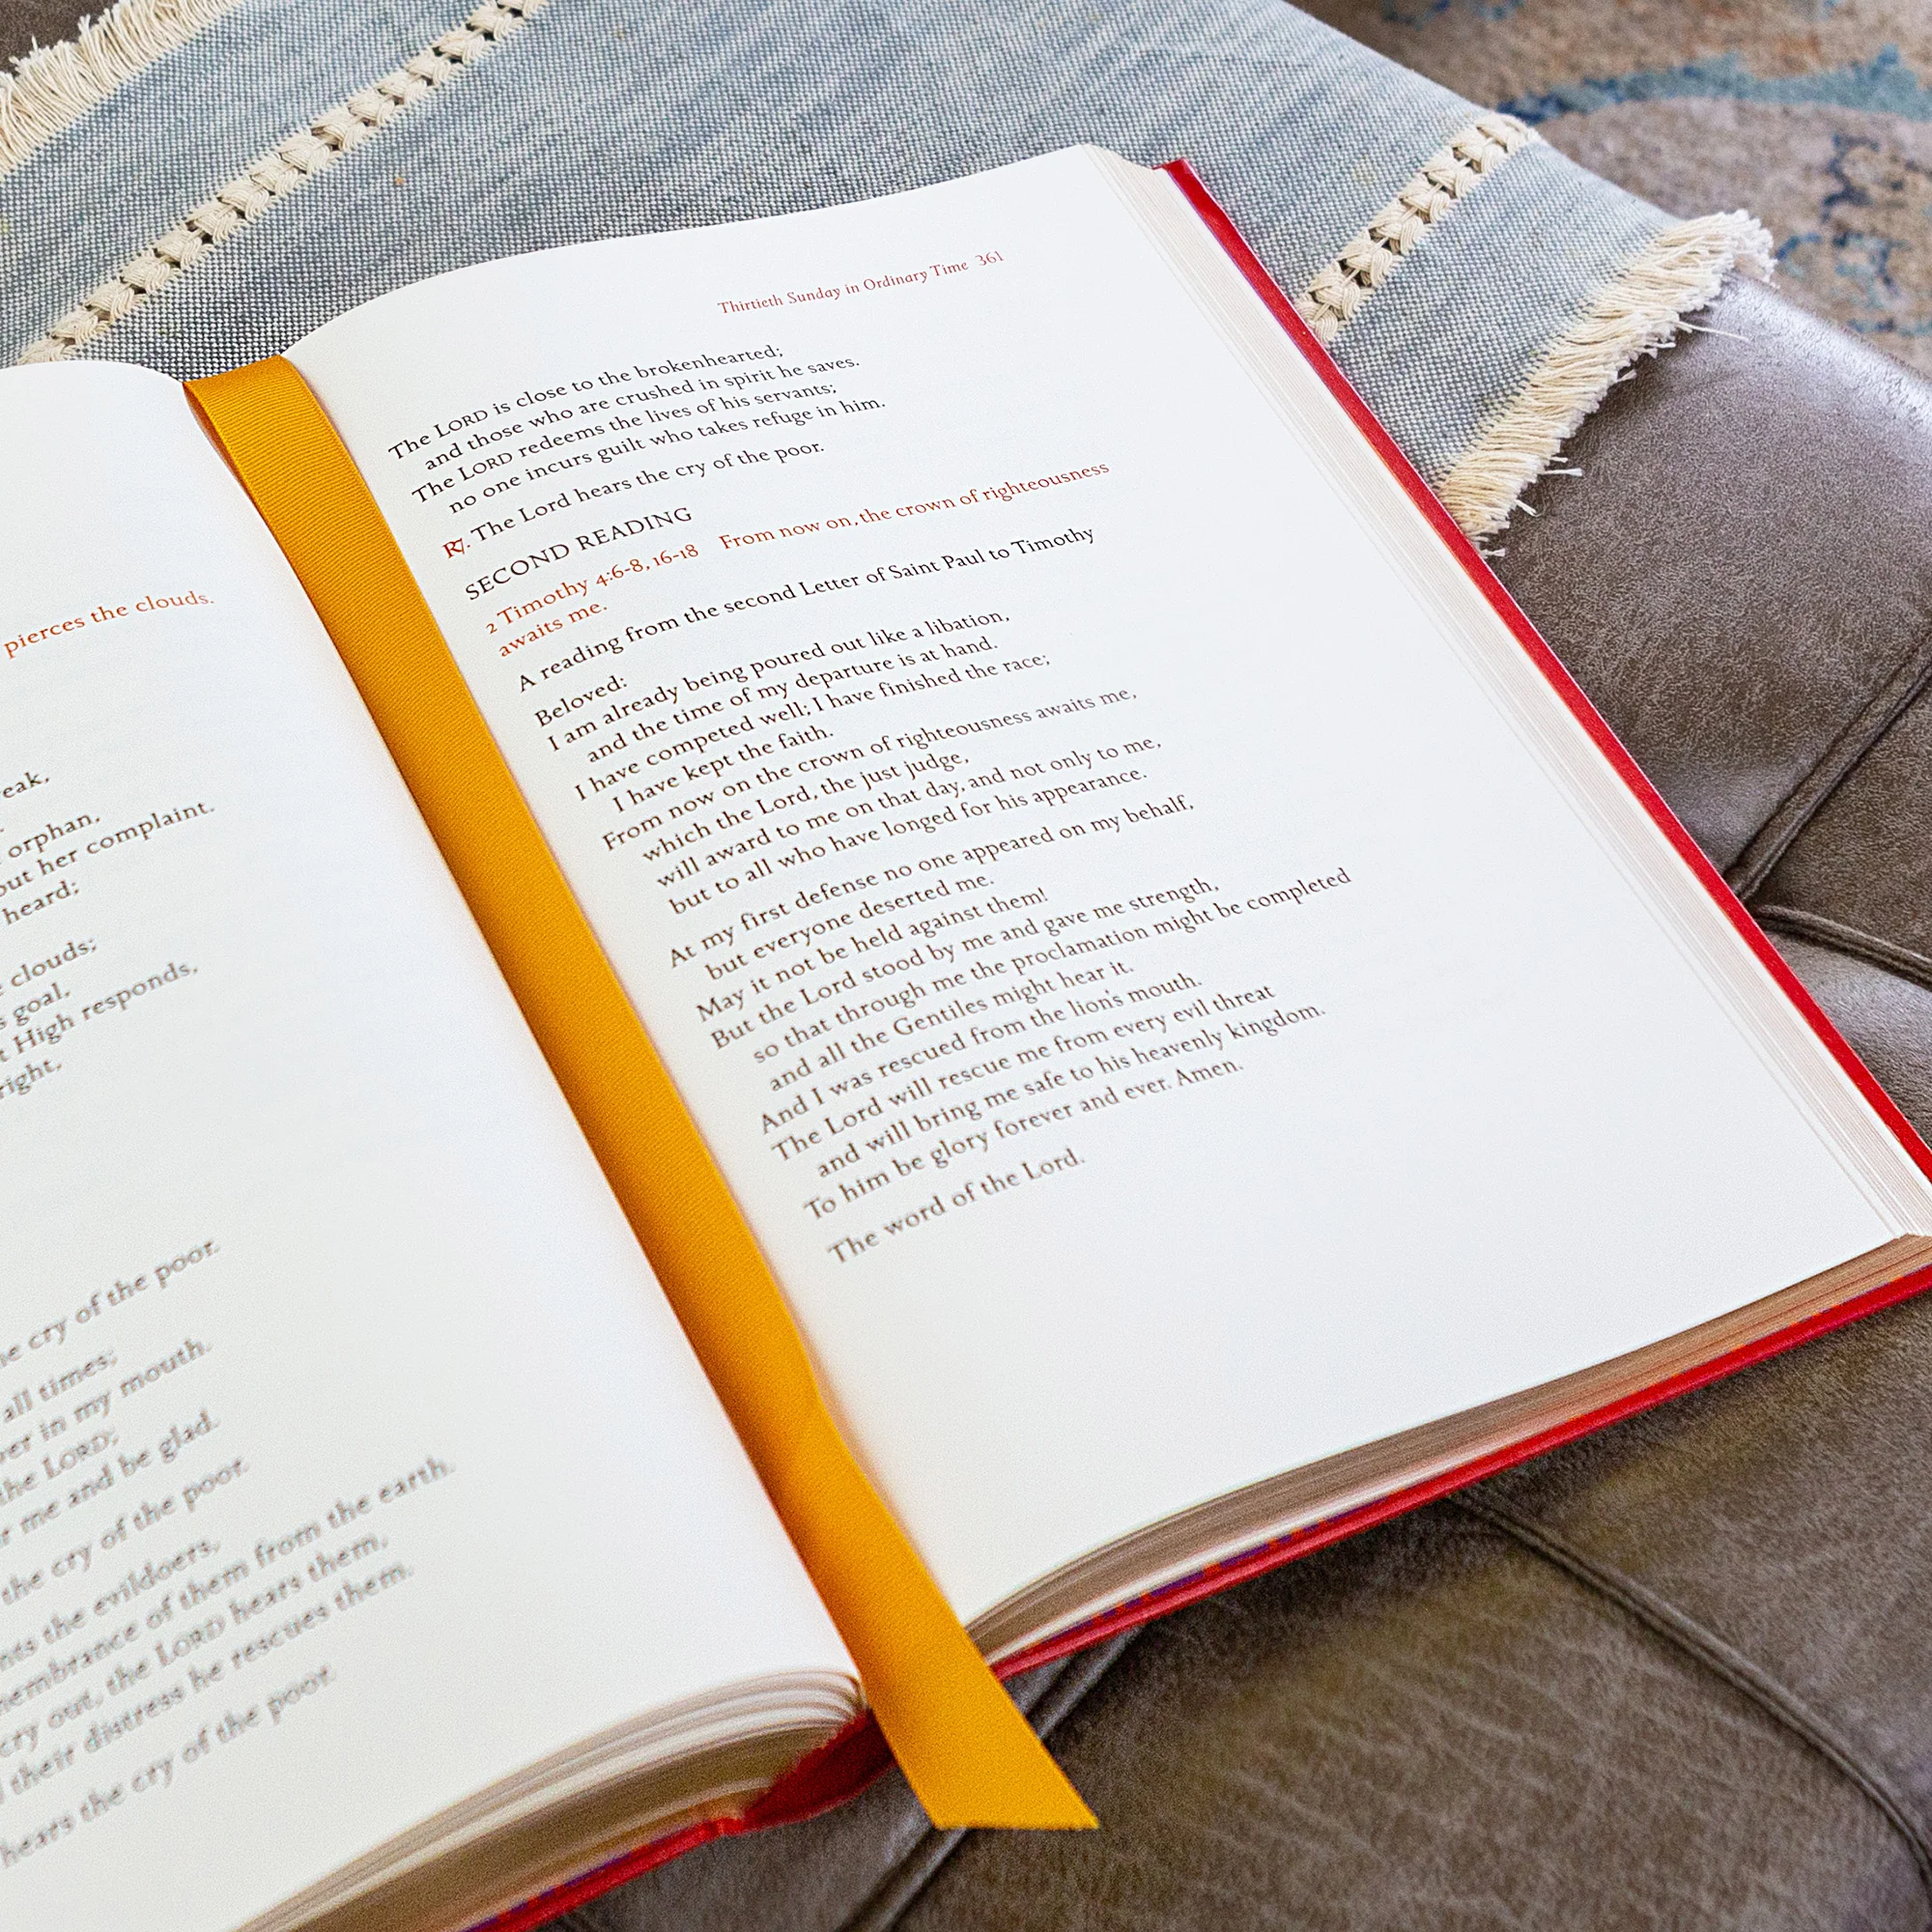 pierces the clouds.
eak,
orphan,
out her complaint.
heard;
clouds;
goal,
High responds,
right,
cry of the poor.
all times;
in my mouth.
the LORD;
me and be glad.
the cry of the poor.
the evildoers,
of them from the earth.
cry out, the LORD hears them,
their distress he rescues them.
hears the cry of the poor.
Thirtieth Sunday in Ordinary Time 361
The LORD is close to the brokenhearted;
and those who are crushed in spirit he saves.
The LORD redeems the lives of his servants;
no one incurs guilt who takes refuge in him.
℟. The Lord hears the cry of the poor.
SECOND READING
2 Timothy 4:6-8, 16-18 From now on, the crown of righteousness
awaits me.
A reading from the second Letter of Saint Paul to Timothy
Beloved:
I am already being poured out like a libation,
and the time of my departure is at hand.
I have competed well; I have finished the race;
I have kept the faith.
From now on the crown of righteousness awaits me,
which the Lord, the just judge,
will award to me on that day, and not only to me,
but to all who have longed for his appearance.
At my first defense no one appeared on my behalf,
but everyone deserted me.
May it not be held against them!
But the Lord stood by me and gave me strength,
so that through me the proclamation might be completed
and all the Gentiles might hear it.
And I was rescued from the lion's mouth.
The Lord will rescue me from every evil threat
and will bring me safe to his heavenly kingdom.
To him be glory forever and ever. Amen.
The word of the Lord.